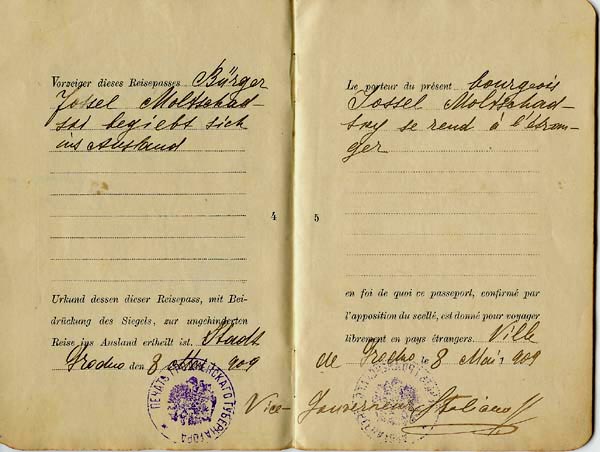 Vorzeiger dieses Reisepasses Bürger
Jossel Moltschad-
ski begiebt sich
ins Ausland
4
Urkund dessen dieser Reisepass, mit Bei-
drückung des Siegels, zur ungehinderten
Reise ins Ausland ertheilt ist. Stadt
Grodno den 8 Mai 909
Le porteur du présent bourgeois
Jossel Moltschad-
sky se rend à l'étran-
ger
5
en foi de quoi ce passeport, confirmé par
l'apposition du scellé, est donné pour voyager
librement en pays étrangers. Ville
de Grodno le 8 Mai 909
Vice-Gouverneur
ПЕЧАТЬ ГРОДНЕНСКАГО ГУБЕРНАТОРА